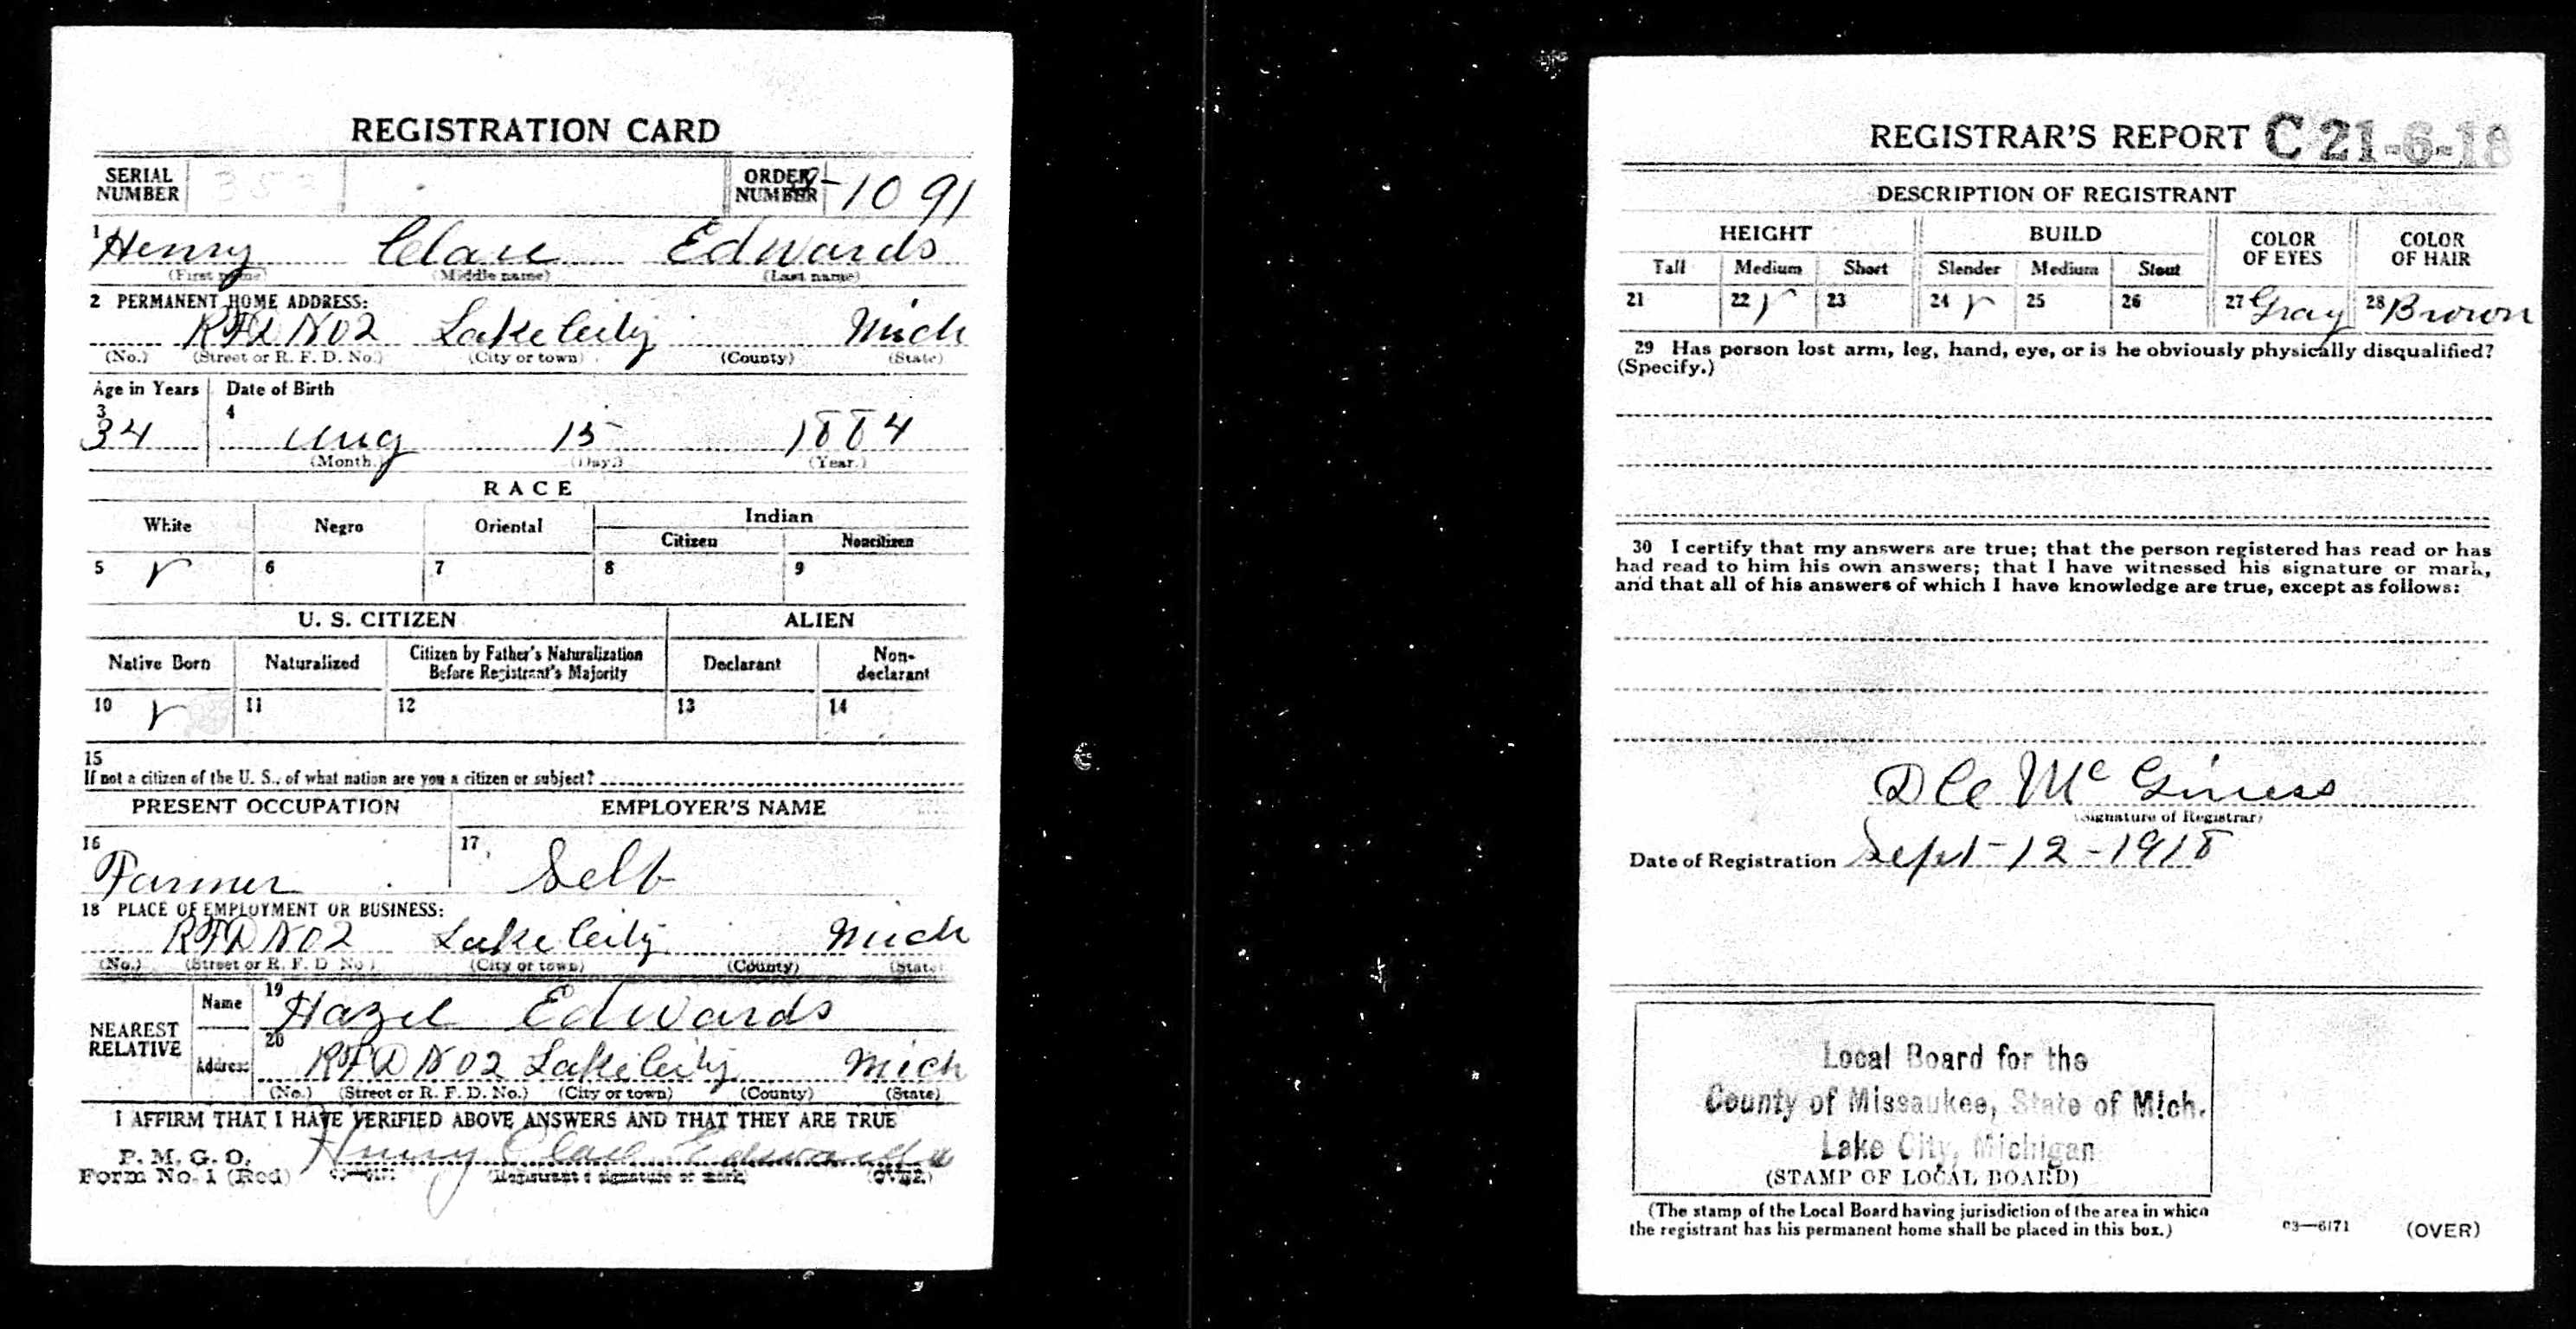 REGISTRATION CARD
SERIAL NUMBER
ORDER NUMBER -1091
1 Henry Edwards
(First name) (Middle name) (Last name)
2 PERMANENT HOME ADDRESS:
RFD No 2 Lake City Mich
(No.) (Street or R. F. D. No.) (City or town) (County) (State)
Age in Years Date of Birth
3 4
34 Aug 15 1884
(Month.) (Day.) (Year.)
RACE
White Negro Oriental Indian
Citizen Noncitizen
5 6 7 8 9
U. S. CITIZEN ALIEN
Native Born Naturalized Citizen by Father's Naturalization Before Registrant's Majority Declarant Non-declarant
10 11 12 13 14
15
If not a citizen of the U. S., of what nation are you a citizen or subject?
PRESENT OCCUPATION EMPLOYER'S NAME
16 17
Farmer Self
18 PLACE OF EMPLOYMENT OR BUSINESS:
RFD No 2 Lake City Mich
(No.) (Street or R. F. D. No.) (City or town) (County) (State)
NEAREST RELATIVE
Name 19 Hazel Edwards
Address 20 RFD No 2 Lake City Mich
(No.) (Street or R. F. D. No.) (City or town) (County) (State)
I AFFIRM THAT I HAVE VERIFIED ABOVE ANSWERS AND THAT THEY ARE TRUE
P. M. G. O.
Form No. 1 (Red) Henry Edwards
(Registrant's signature or mark) (OVER)
REGISTRAR'S REPORT C 21-6-18
DESCRIPTION OF REGISTRANT
HEIGHT BUILD COLOR OF EYES COLOR OF HAIR
Tall Medium Short Slender Medium Stout
21 22 23 24 25 26 27 Gray 28 Brown
29 Has person lost arm, leg, hand, eye, or is he obviously physically disqualified?
(Specify.)
30 I certify that my answers are true; that the person registered has read or has
had read to him his own answers; that I have witnessed his signature or mark,
and that all of his answers of which I have knowledge are true, except as follows:
Mc Giness
(Signature of Registrar)
Date of Registration Sept-12-1918
Local Board for the
County of Missaukee, State of Mich.
Lake City, Michigan
(STAMP OF LOCAL BOARD)
(The stamp of the Local Board having jurisdiction of the area in which
the registrant has his permanent home shall be placed in this box.)
03—6171 (OVER)